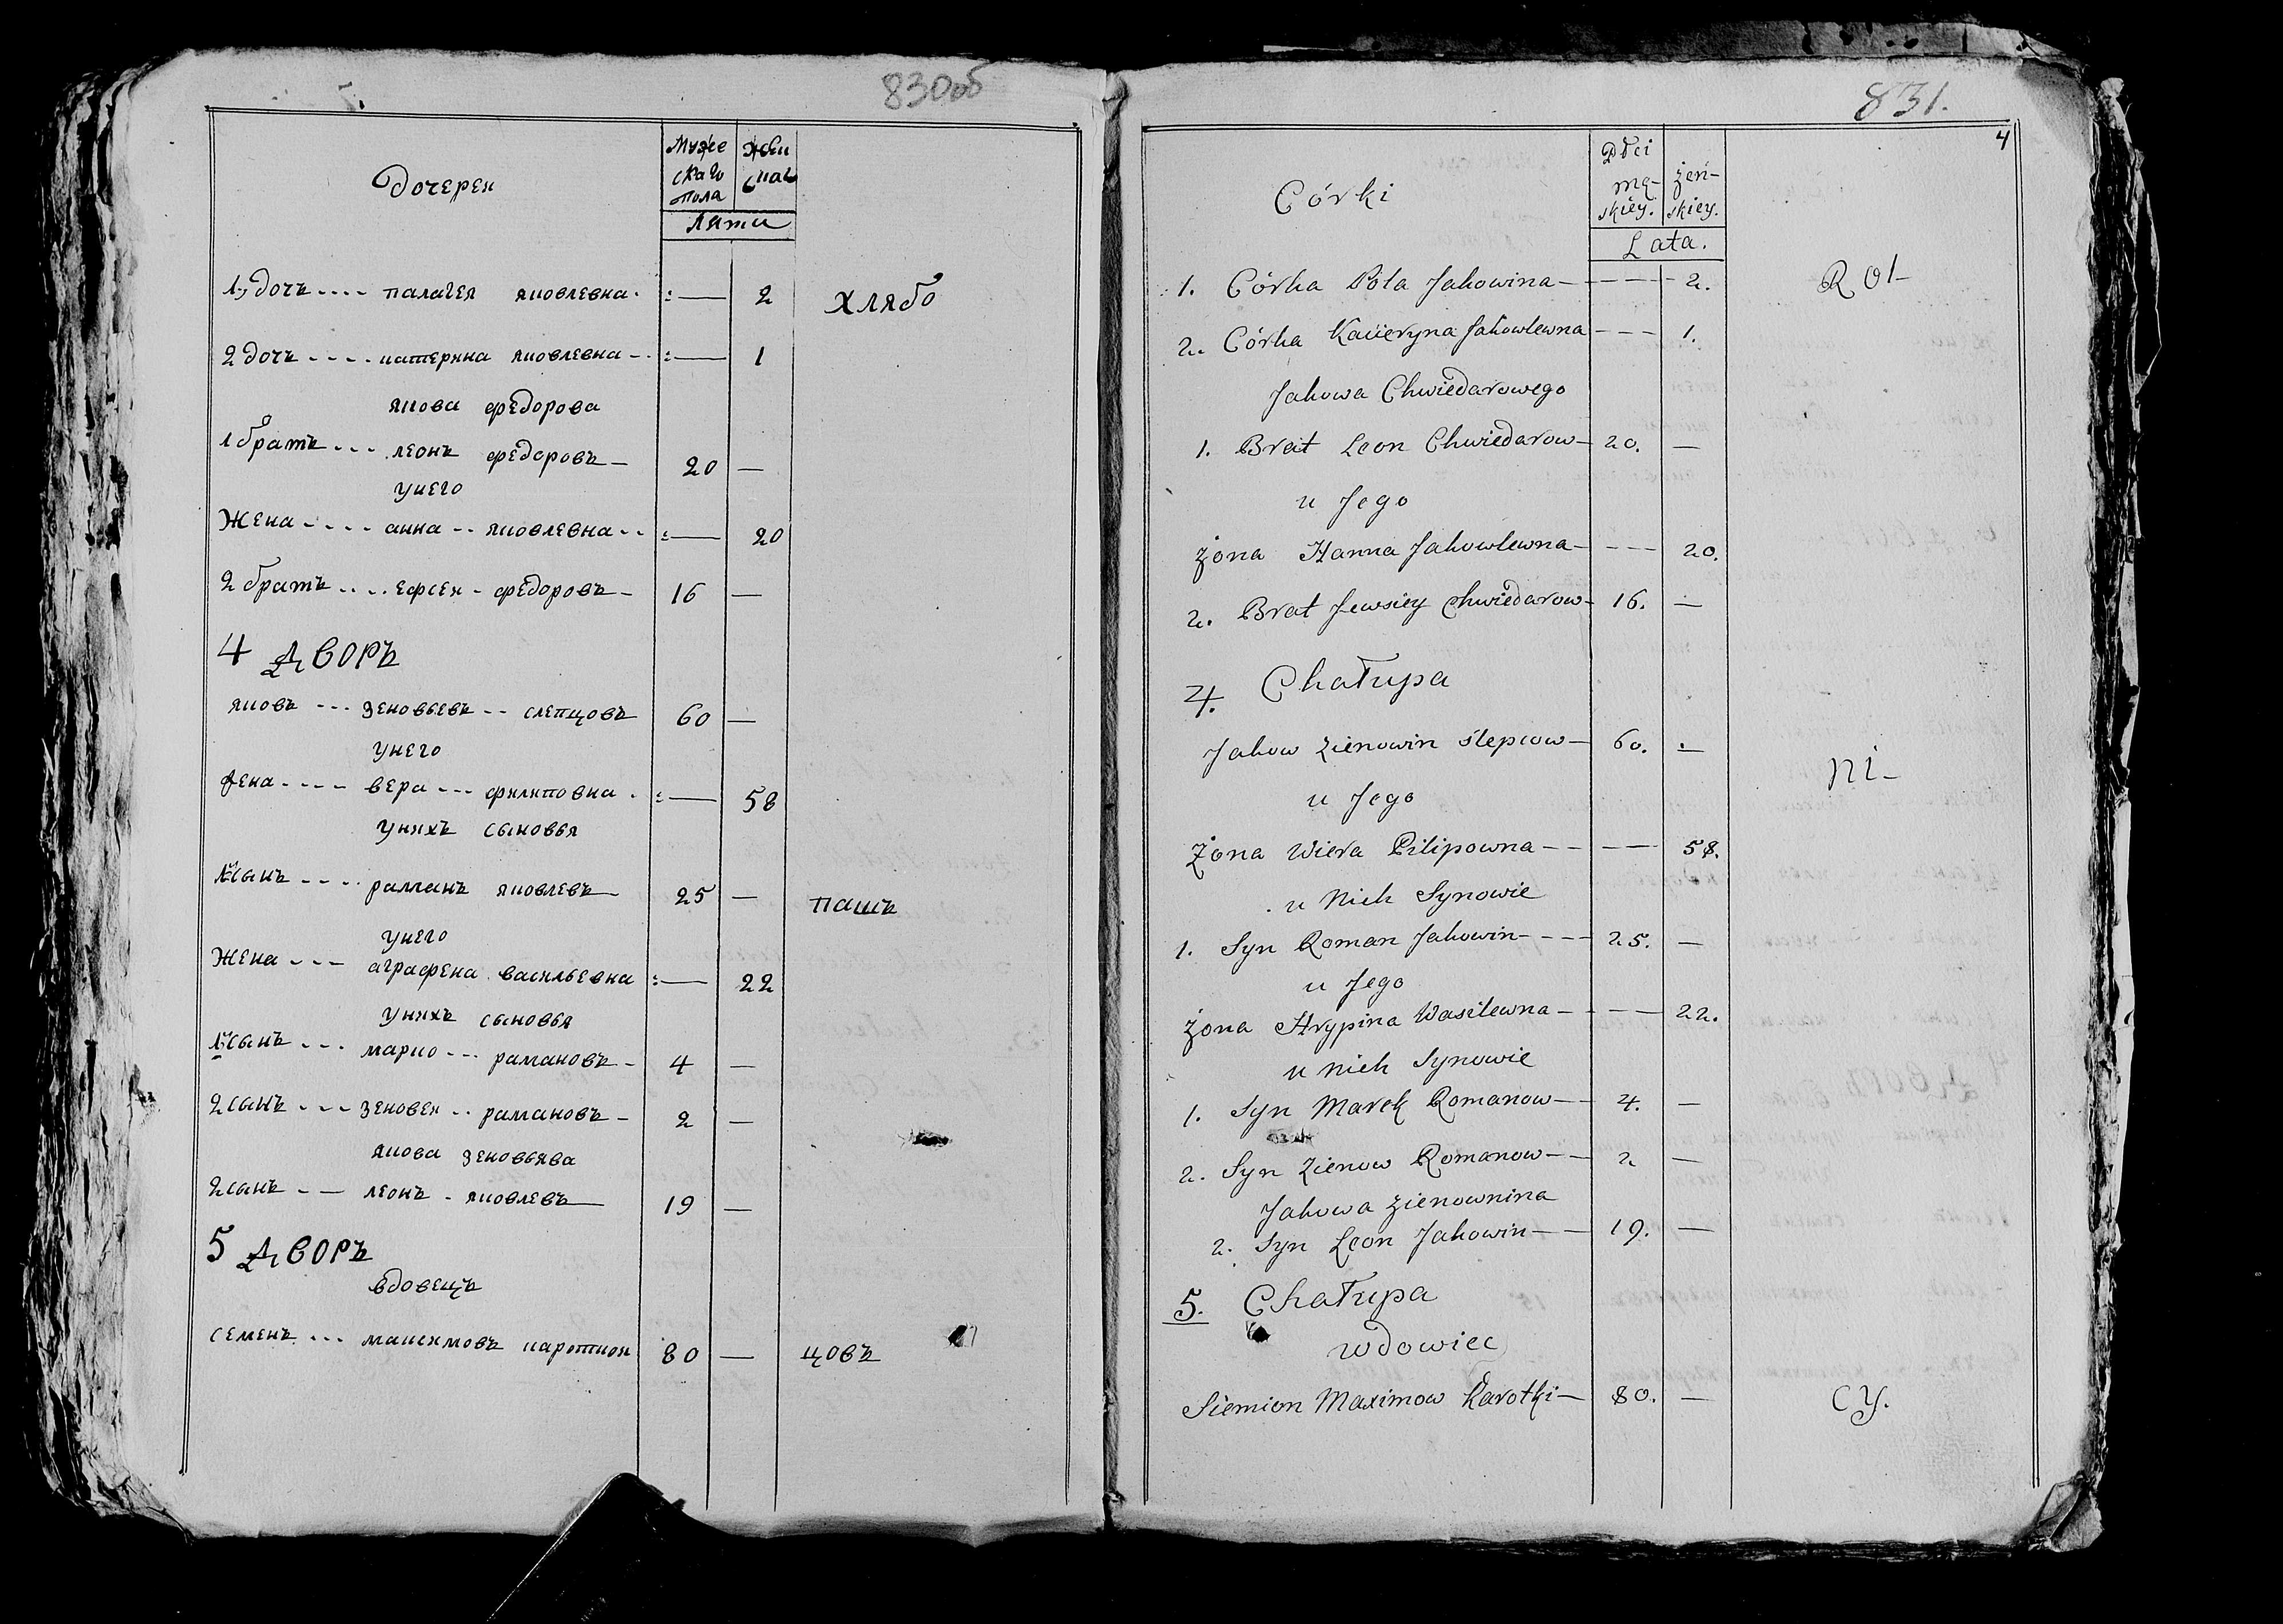 830об
дочерей
Муже
скаго
пола
жен
скаг
лѣти
1, дочь .... палагея яковлевна. :— 2 хлябо
2 дочь .... катерина яковлевна :— 1
якова федорова
1 братъ ... леонъ федоровъ — 20 —
унего
жена .... анна .. яковлевна .. :— 20
2 братъ .... ефсеи - федоровъ — 16 —
4 дворъ
яковъ ... зеновьевъ .. слепцовъ 60 —
унего
жена .... вера ... филиповна . :— 58
унихъ сыновья
1, сынъ .... раманъ яковлевъ 25 — пашъ
унего
жена ... аграфена васильевна :— 22
унихъ сыновья
1, сынъ ... марко ... рамановъ - 4 —
2 сынъ ... зеновеи .. рамановъ - 2 —
якова зеновьява
2 сынъ .. — леонъ - яковлевъ — 19 —
5 дворъ
вдовецъ
семенъ ... максимовъ кароткои 80 — цовъ
831.
4
Córki
Płci
mę-
skiey.
żeń-
skiey.
Lata.
1. Córka Pola Jakowina — --- 2. Rol-
2. Córka Kacieryna Jakowlewna --- 1.
Jakowa Chwiedarowego
1. Brat Leon Chwiedarow — 20. —
u Jego
żona Hanna Jakowlewna — --- 20.
2. Brat Jewsiey Chwiedarow - 16. —
4. Chałupa
Jakow Zienowin Slepcow — 60. —
ni-
u Jego
Żona Wiera Pilipowna — — --- 58.
u Nich Synowie
1. Syn Roman Jakowin --- 25. —
u Jego
żona Hrypina Wasilewna — --- 22.
u nich Synowie
1. Syn Marek Romanow — 4. —
2. Syn Zienow Romanow — 2 —
Jakowa Zienownina
2. Syn Leon Jakowin — 19. —
5. Chałupa
wdowiec
Siemion Maximow Karotki — 80. — cy.